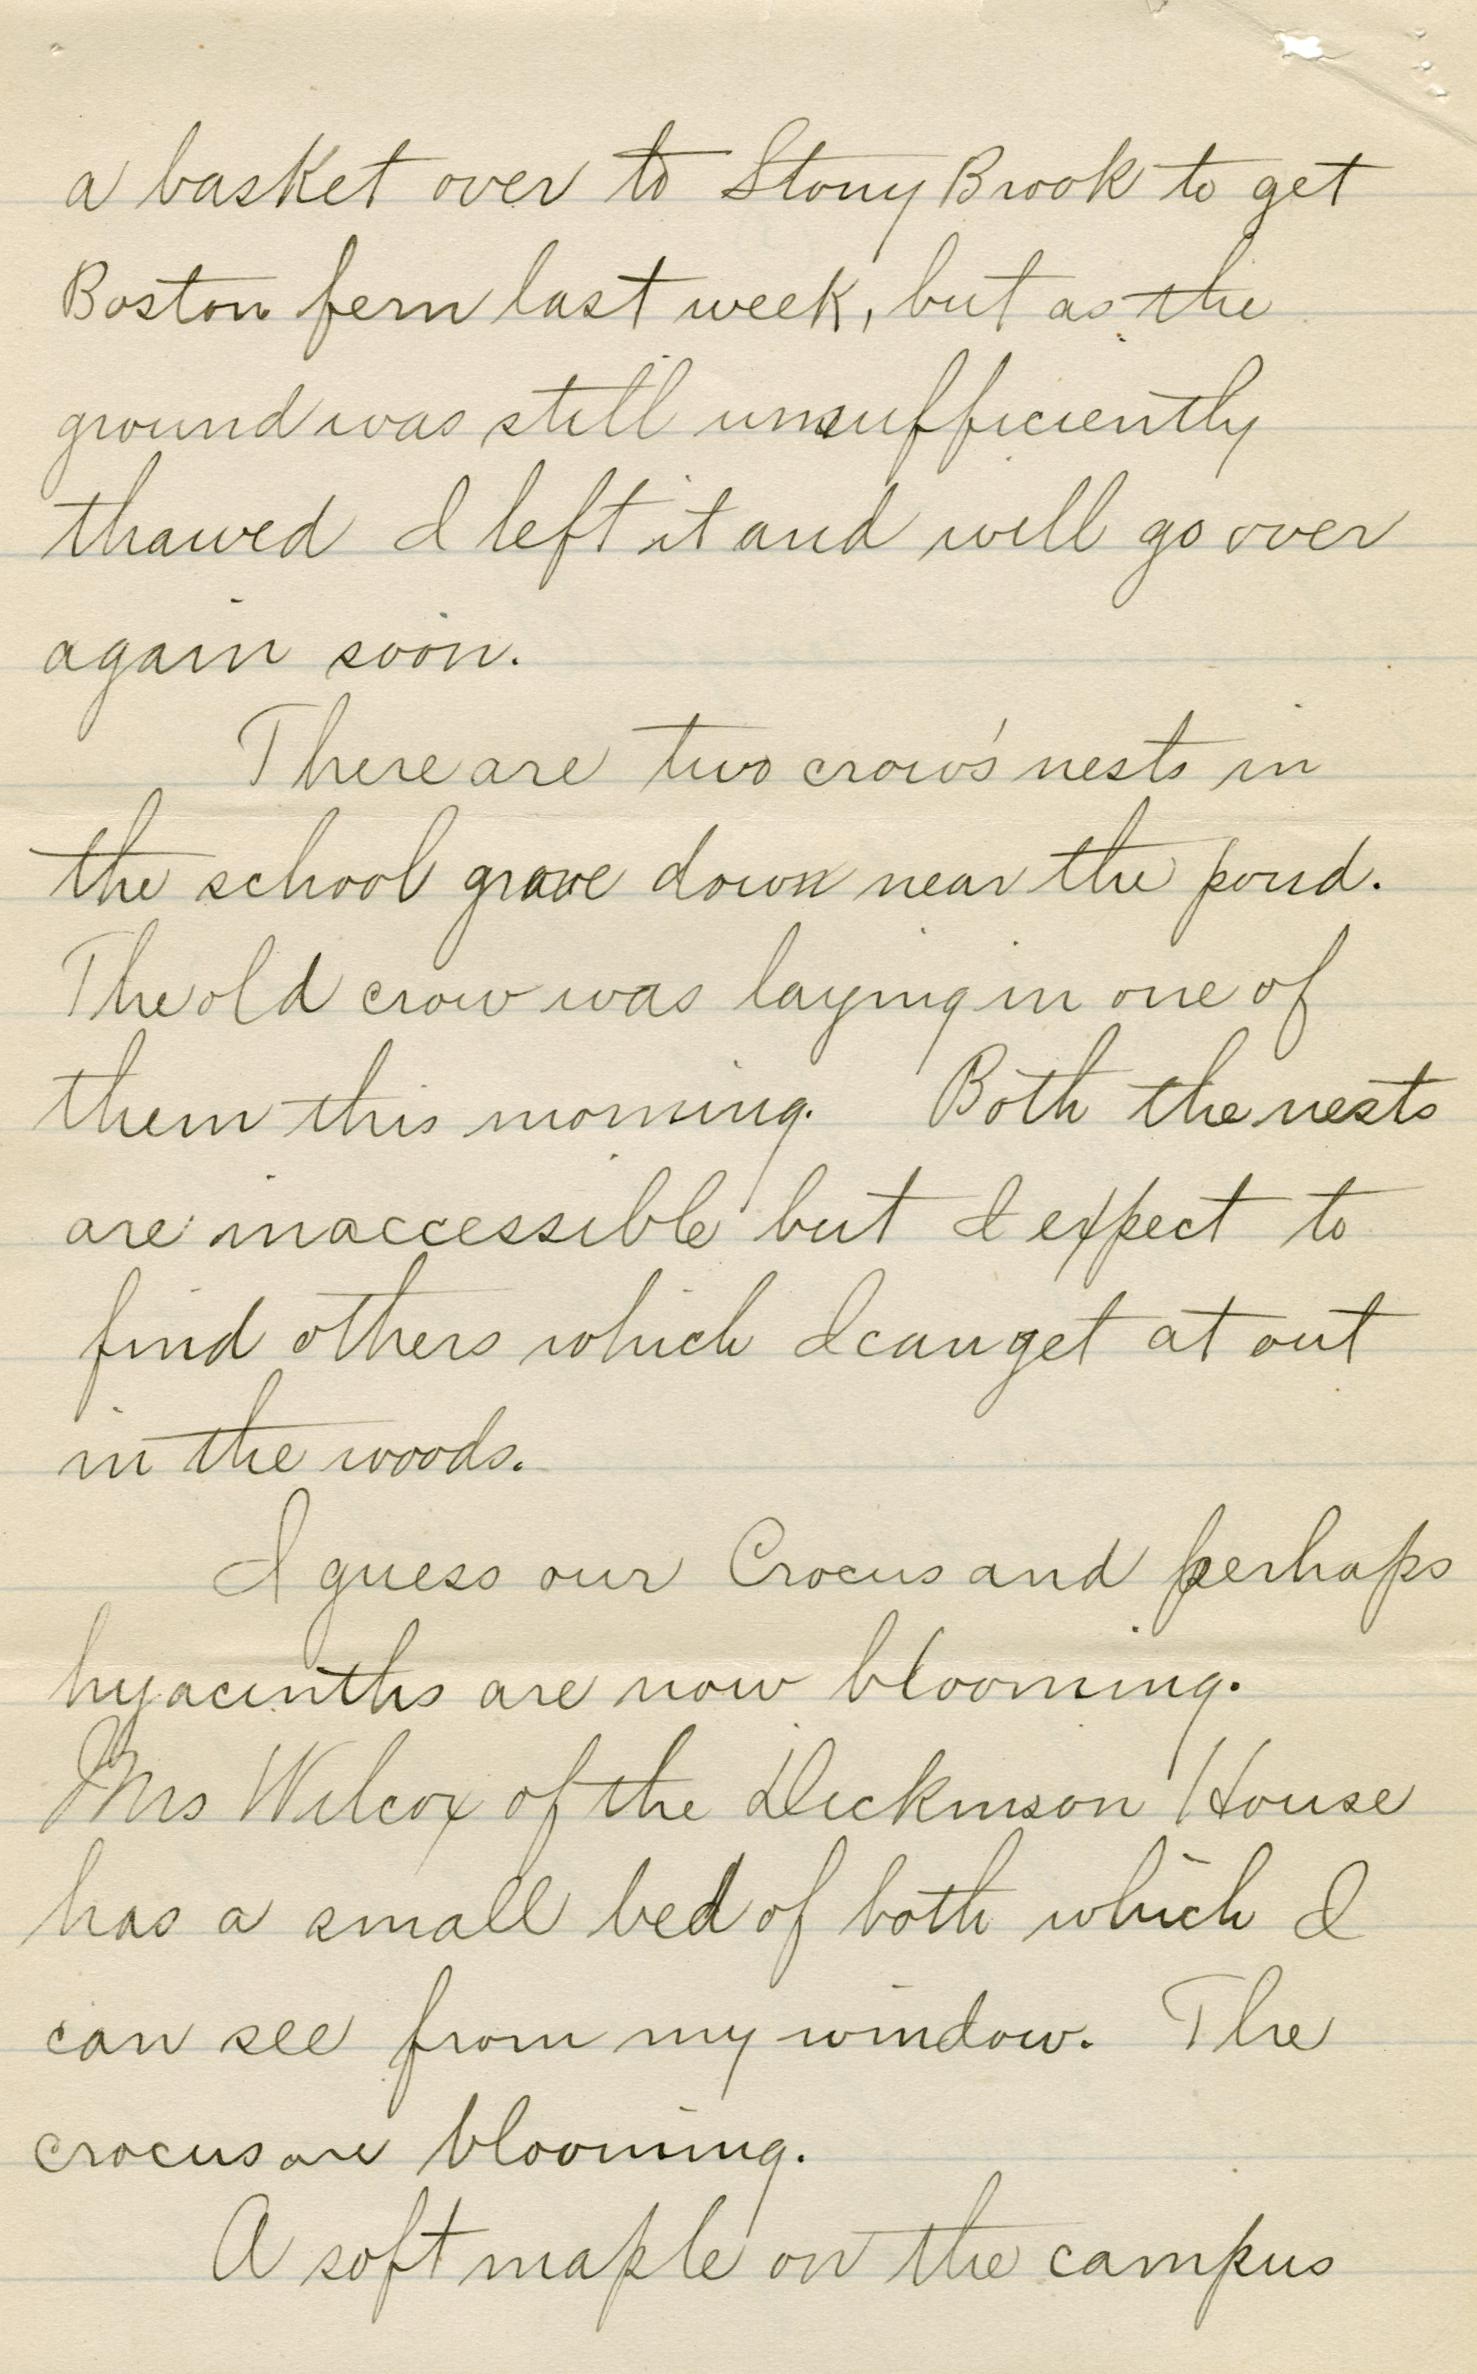 a basket over to Stony Brook to get
Boston fern last week, but as the
ground was still unsufficiently
thawed I left it and will go over
again soon.
There are two crow's nests in
the school grove down near the pond.
The old crow was laying in one of
them this morning. Both the nests
are inaccessible but I expect to
find others which I can get at out
in the woods.
I guess our Crocus and perhaps
hyacinths are now blooming.
Mrs Wilcox of the Dickinson House
has a small bed of both which I
can see from my window. The
crocus are blooming.
A soft maple on the campus